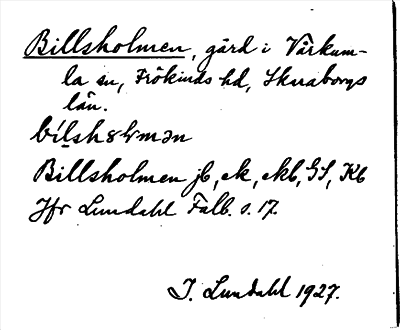 Billsholmen, gård i Vårkum-
la sn, Frökinds hd, Skaraborgs
län.
bílshɷlmən
Billsholmen jb, ek, ekb, GS, Kb
Jfr Lundahl Falb. s. 17.
I. Lundahl 1927.